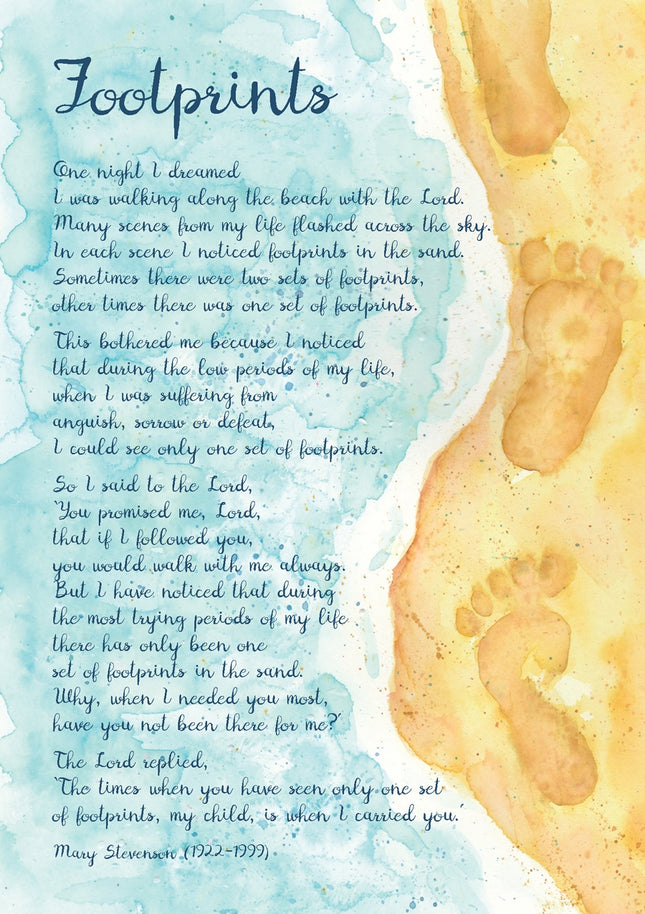 Footprints
One night I dreamed
I was walking along the beach with the Lord.
Many scenes from my life flashed across the sky.
In each scene I noticed footprints in the sand.
Sometimes there were two sets of footprints,
other times there was one set of footprints.
This bothered me because I noticed
that during the low periods of my life,
when I was suffering from
anguish, sorrow or defeat,
I could see only one set of footprints.
So I said to the Lord,
‘You promised me, Lord,
that if I followed you,
you would walk with me always.
But I have noticed that during
the most trying periods of my life
there has only been one
set of footprints in the sand.
Why, when I needed you most,
have you not been there for me?’
The Lord replied,
‘The times when you have seen only one set
of footprints, my child, is when I carried you.’
Mary Stevenson (1922-1999)